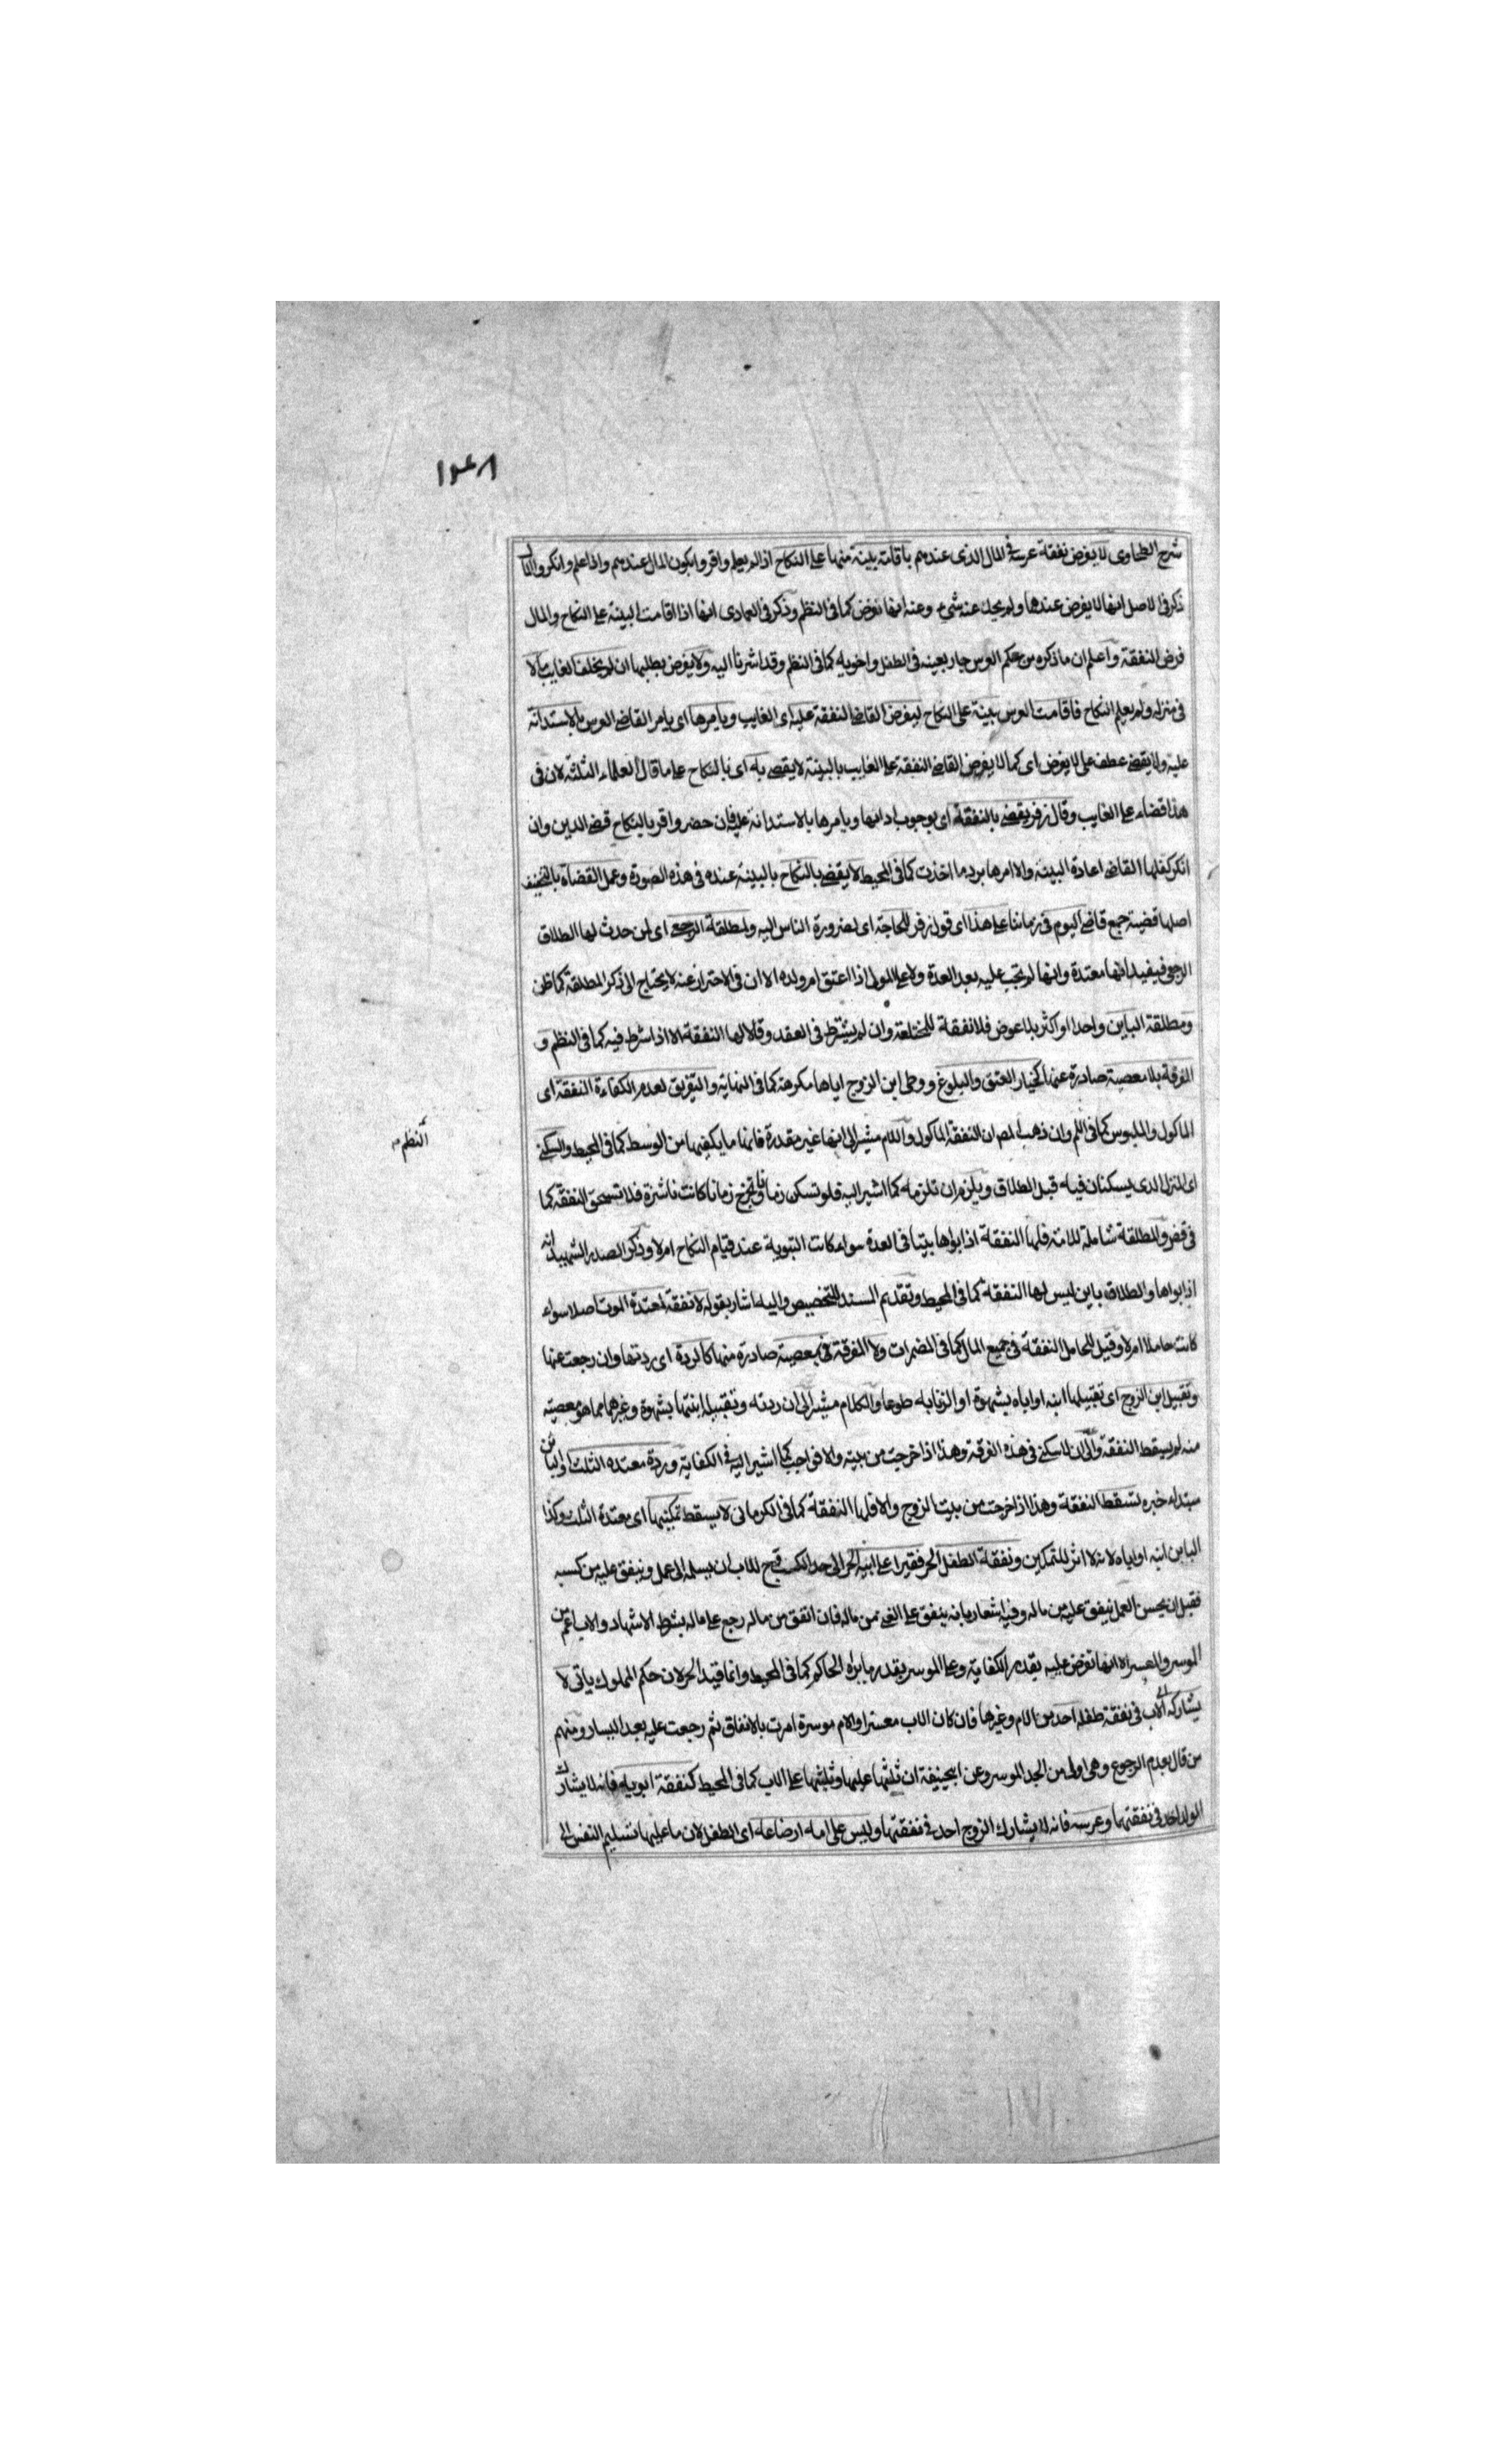 ١٤٨
شرح الطحاوى لا يفرض نفقة عرسه فى المال الذى عندهم باقامة بينة منها على النكاح اذا لم يعلم واقروا بكون المال عندهم واذا علم وانكروا المال
ذكر فى الاصل انها لا يفرض عندها ولم يحك عنه شئ وعنه انها تفرض كما فى النظم وذكر فى العمادى انها اذا اقامت البينة على النكاح والمال
فرض النفقة واعلم ان ما ذكره من حكم العرس جار بعينه فى الطفل واخويه كما فى النظم وقد اشرنا اليه ولا يفرض بطلبها ان لم يخلف الغايب مالا
فى منزله ولم يعلم النكاح فاقامت العرس بينة على النكاح ليفرض القاضى النفقة عليه اى الغايب ويامرها اى يامر القاضى العرس بالاستدانة
عليه ولا يقضى عطف على لا يفرض اى كما لا يفرض القاضى النفقة على الغايب بالبينة لا يقضى به اى بالنكاح على ما قال العلماء الثلثة لان فى
هذا قضاء على الغايب وقال زفر يقضى بالنفقة اى بوجوب ادائها ويامرها بالاستدانة عليه فان حضر واقر بالنكاح قضى الدين وان
انكر كفلها القاضى اعادة البينة والا امرها برد ما اخذت كما فى المحيط لا يقضى بالنكاح بالبينة عنده فى هذه الصورة وعمل القضاة بالتخفيف
اصلها قضية جمع قاضى اليوم فى زماننا على هذا اى قول زفر للحاجة اى لضرورة الناس اليه ولمطلقة الرجعى اى لمن حدث لها الطلاق
الرجعى فيفيد انها معتدة وانها لم تجب عليه بعد العدة ولا على المولى اذا اعتق ام ولده الا ان فى الاحتراز عنه لا يحتاج الى ذكر المطلقة كما ظن
ومطلقة الباين واحدا او اكثر بلا عوض فلا نفقة للمختلعة وان لم يشترط فى العقد وقالا لها النفقة الا اذا شرط فيه كما فى النظم و
الفرقة بلا معصية صادرة عنها كخيار العتق والبلوغ ووطى ابن الزوج اياها مكرهة كما فى النهاية والتفريق لعدم الكفاءة النفقة اى
الماكول والملبوس كما فى وان ذهب المص ان النفقة الماكول واللام مشير الى انها غير مقدرة فانها ما يكفيها من الوسط كما فى المحيط والسكنى
النظم
اى المنزل الذى يسكنان فيه قبل الطلاق ويلزم ان تلزمه كما اشير اليه فلو تسكن زمانا وتخرج زمانا كانت ناشزة فلا تستحق النفقة كما
فى والمطلقة شاملة للامة فلها النفقة اذا بواها بيتا فى العدة سواء كانت التبوية عند قيام النكاح ام لا وذكر الصدر الشهيد انه
اذا بواها والطلاق باين ليس لها النفقة كما فى المحيط وتقديم المسند للتخصيص واليه اشار بقوله لا نفقة لمعتدة الموت اصلا سواء
كانت حاملا ام لا وقيل للحامل النفقة فى جميع المال كما فى المضمرات ولا الفرقة فى بمعصية صادرة منها كالردة اى ردتها وان رجعت عنها
وتقبيل ابن الزوج اى تقبيلها ابنه او اباه بشهوة او الزنا به طوعا والكلام مشير الى ان ردته وتقبيله ابنتها بشهوة وغيرهما مما هو معصية
منه لم يسقط النفقة والى ان لا سكنى فى هذه الفرقة وهذا اذا خرجت من بيته والا فواجب كما اشير اليه فى الكفاية وردة معتدة الثلث او الباين
مبتداء خبره تسقط النفقة وهذا اذا خرجت من بيت الزوج والا فلها النفقة كما فى الكرمانى لا يسقط تمكينها اى معتدة الثلث وكذا
الباين ابنه او اباه لانه لا اثر للتمكين ونفقة الطفل الحر فقيرا على ابيه الحر الى حد الكسب للاب ان يسلمه الى عمل وينفق عليه من كسبه
فقبل ان يحسن العمل ينفق عليه من ماله وفيه اشعار بانه ينفق على الغنى من ماله فان انفق من ماله رجع على ماله بشرط الاشهاد والاب اعم من
الموسر والمعسر الا انها تفرض عليه بقدر الكفاية وعلى الموسر بقدر ما يراه الحاكم كما فى المحيط وانما قيد الحر لان حكم المملوك ياتى لا
يشاركه اى الاب فى نفقة طفله احد من الام وغيرها فان كان الاب معسرا والام موسرة امرت بالانفاق ثم رجعت عليه بعد اليسار ومنهم
من قال بعدم الرجوع وهى اولى من الجد الموسر وعن ابيحنيفة ان ثلثها عليها وثلثيها على الاب كما فى المحيط كنفقة ابويه فانه لا يشارك
الولد احد فى نفقتهما وعرسه فانه لا يشارك الزوج احد فى نفقتها وليس على امه ارضاعه اى الطفل لان ما عليها تسليم النفس الى